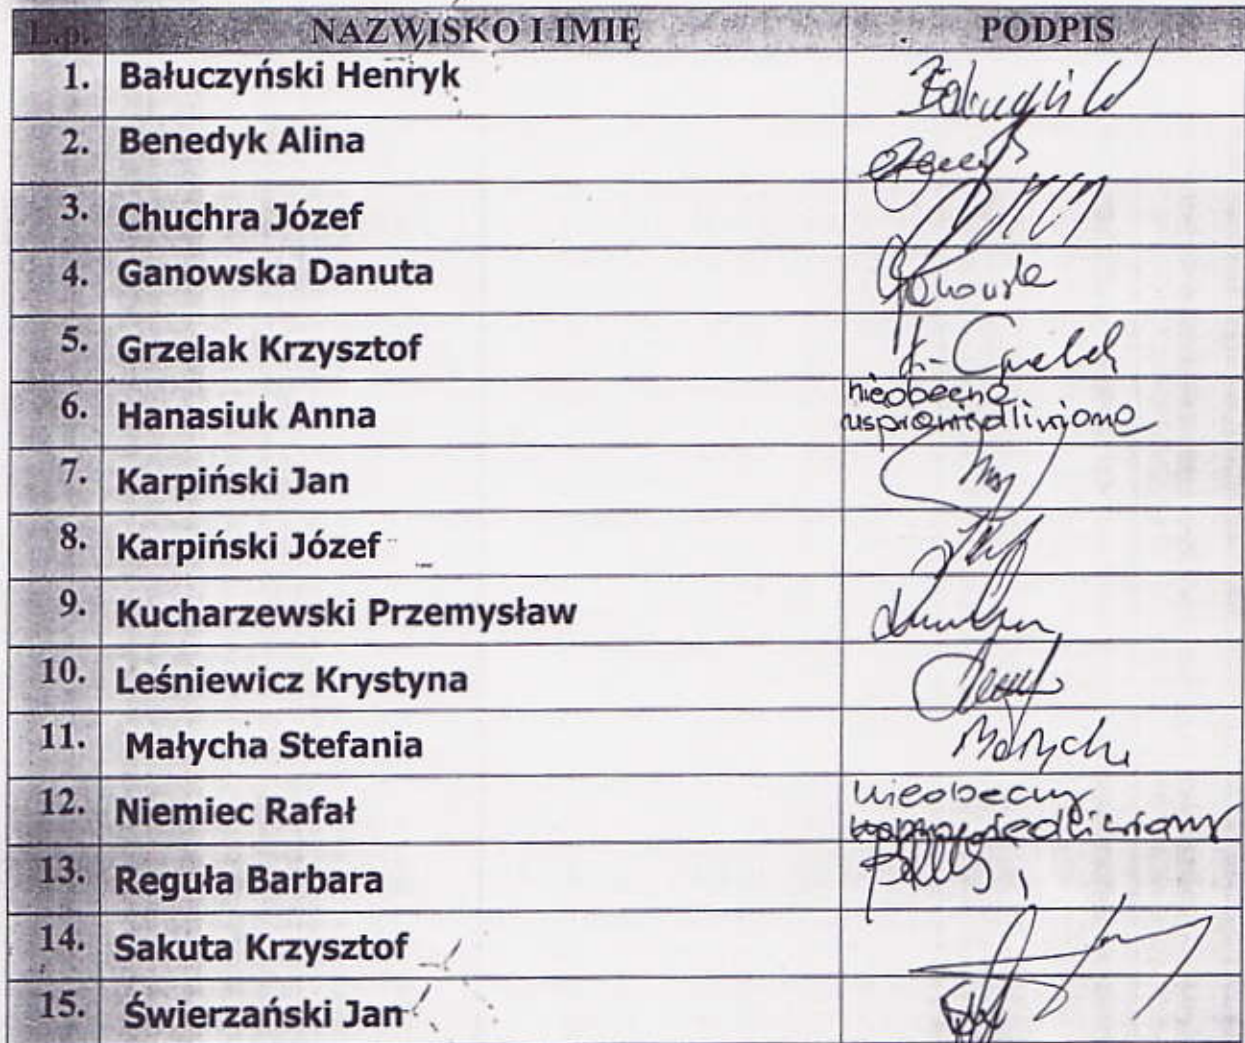 L.p. NAZWISKO I IMIĘ PODPIS
1. Bałuczyński Henryk
2. Benedyk Alina
3. Chuchra Józef
4. Ganowska Danuta
5. Grzelak Krzysztof
6. Hanasiuk Anna nieobecna
usprawiedliwiona
7. Karpiński Jan
8. Karpiński Józef
9. Kucharzewski Przemysław
10. Leśniewicz Krystyna
11. Małycha Stefania Małycha
12. Niemiec Rafał nieobecny
usprawiedliwiony
13. Reguła Barbara
14. Sakuta Krzysztof
15. Świerzański Jan